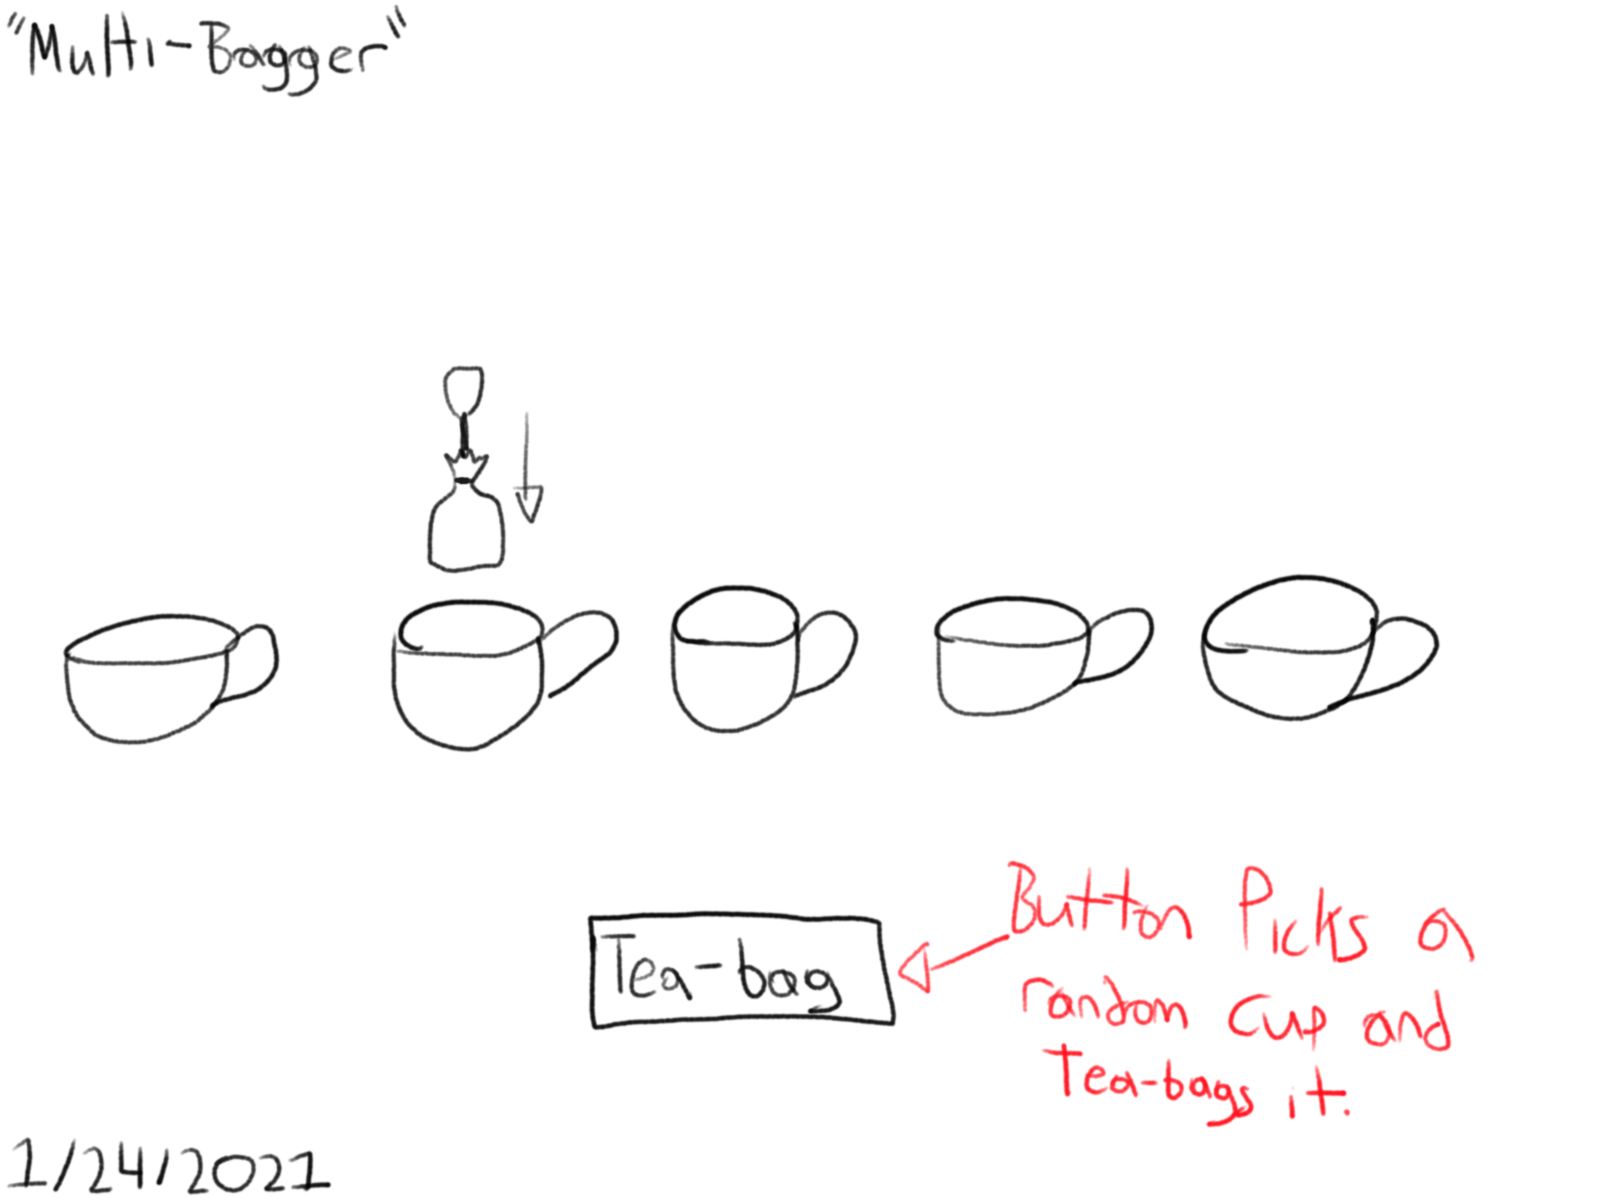 "Multi-Bagger"
Tea-bag
Button Picks a
random cup and
Tea-bags it.
1/24/2021